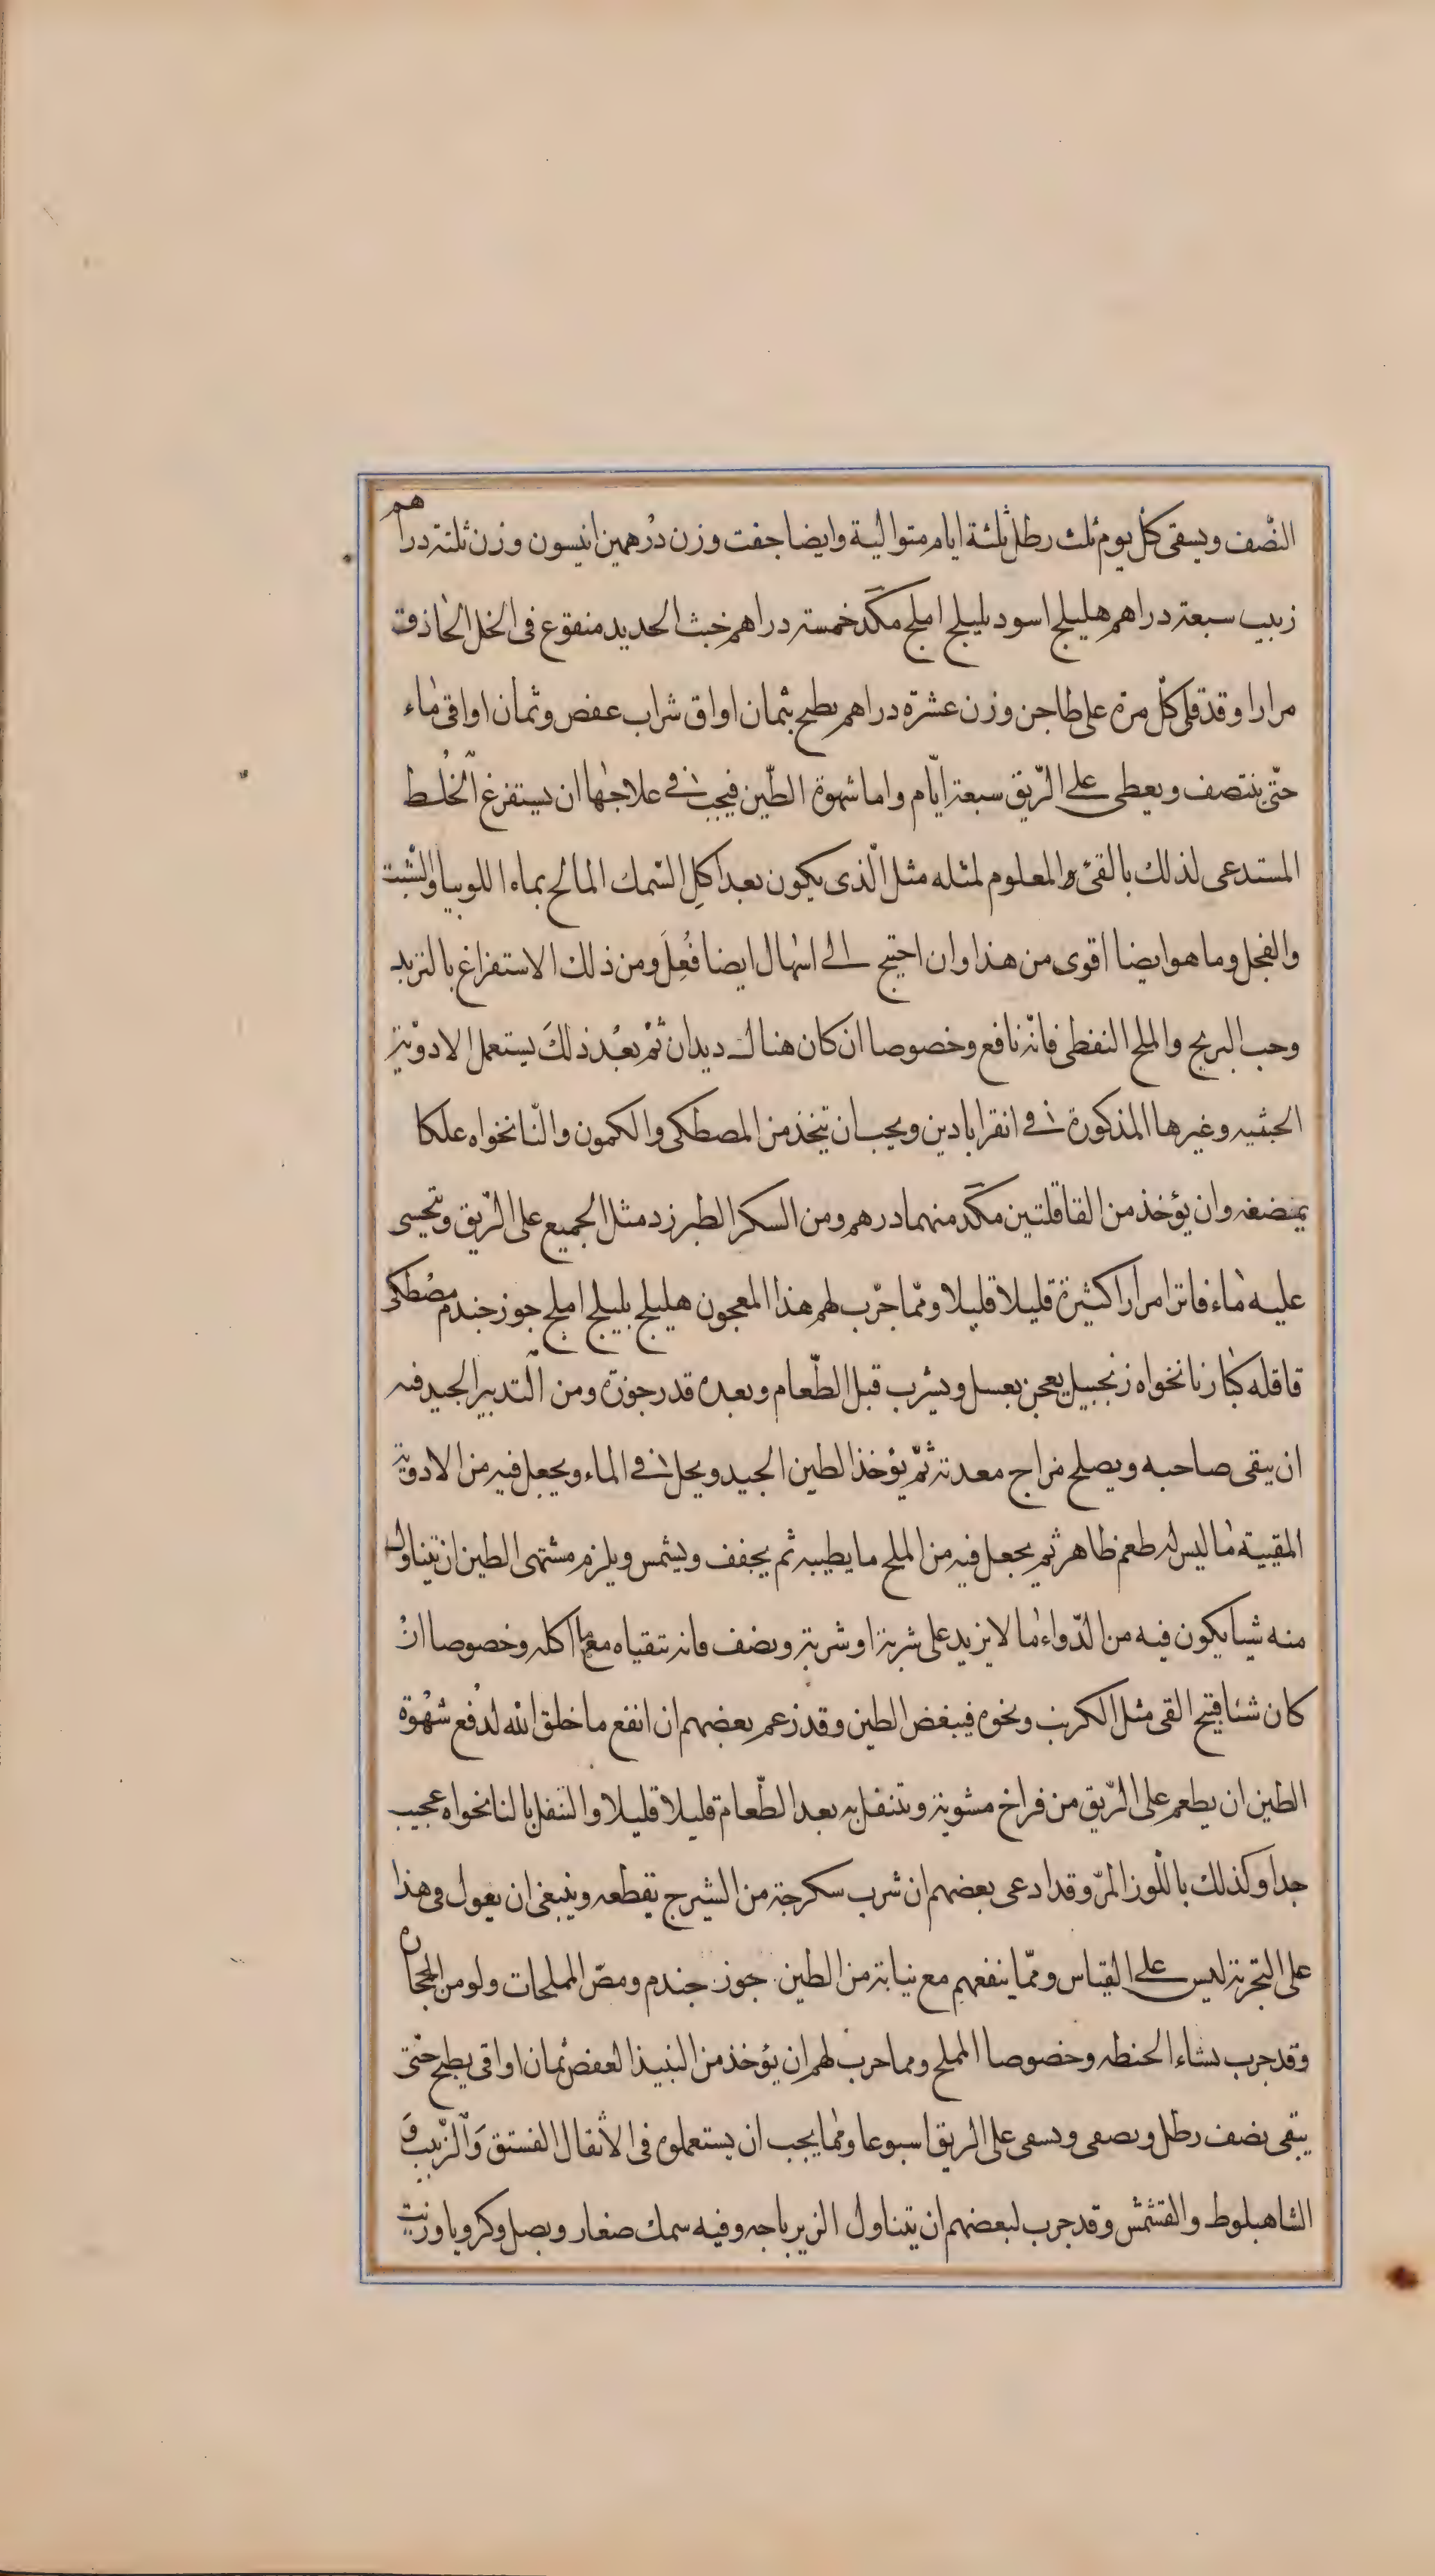 النّصف ويسقى كلّ يوم ثلث رطل ثلثة ايام متوالية وايضا جفت وزن درهمين انيسون وزن ثلثة دراهم
زبيب سبعة دراهم هليلج اسود بليلج املج مكد خمسة دراهم خبث الحديد منقوع فى الخل الحاذق
مرارا وقد قلى كلّ مرة على طاجن وزن عشرة دراهم يطبخ بثمان اواق شراب عفص وثمان اواقى ماء
حتّى ينتصف ويعطى على الرّيق سبعة ايّام واما شهوة الطّين فيجب فى علاجها ان يستفرغ الخلط
المستدعى لذلك بالقئ المعلوم لمثله مثل الّذى يكون بعد اكل السّمك المالح بماء اللوبيا والشبت
والفجل وما هو ايضا اقوى من هذا وان احتيج الى اسهال ايضا فُعِلَ ومن ذلك الاستفراغ بالتربد
وحب البرنج والملح النفطى فانّه نافع وخصوصا ان كان هناك ديدان ثمّ بعد ذلكَ يستعمل الادوية
الخبثيه وغيرها المذكورة فى انقراباذين ويجب ان يتخذ من المصطكى والكمون والنّانخواه علكا
يمضغه وان يؤخذ من القاقلتين مكد منهما درهم ومن السكر الطبرزد مثل الجميع على الرّيق ويتحسى
عليه ماء فاترا مرارا كثيرة قليلا قليلا وممّا جرّب لهم هذا المعجون هليلج بليلج املج جوز جندم مصطكى
قاقله كبار نانخواه زنجبيل يعجن بعسل ويشرب قبل الطّعام وبعده قدر جوزة ومن التدبير الجيد فيه
ان ينقى صاحبه ويصلح مزاج معدته ثمّ يؤخذ الطين الجيد ويحل فى الماء ويجعل فيه من الادوية
المقيية ما ليس له طعم ظاهر ثم يجعل فيه من الملح ما يطيبه ثم يجفف ويشمس ويلزم مشتهى الطين ان يتناول
منه شيا يكون فيه من الدّواء ما لا يزيد على شربة او شربة ونصف فانه يتقياه مع ما اكله وخصوصا ان
كان شئا قبيح القى مثل الكرنب ونحوه فيبغض الطين وقد زعم بعضهم ان انفع ما خلق الله لدفع شهوة
الطين ان يطعم على الرّيق من فراخ مشوية ويتنقل به بعد الطّعام قليلا قليلا والتنقل بالنانخواه عجيب
جدا وكذلك باللّوز المرّ وقد ادعى بعضهم ان شرب سكرجة من الشيرج يقطعه وينبغى ان يعول فى هذا
على التجربة ليس على القياس وممّا ينفعهم مع نيابة من الطين جوز جندم ومصّ المملحات ولو من الحجاره
وقد جرب نشاء الحنطه وخصوصا المملح ومما جرب لهم ان يؤخذ من النبيذ العفص ثمان اواقى يطبخ حتى
يبقى نصف رطل ويصفى ويسقى على الريق اسبوعا ومما يجب ان يستعملوه فى الانقال الفستق والزّبيب و
الشاهبلوط والقشمش وقد جرب لبعضهم ان يتناول الزيرباجه وفيه سمك صغار وبصل وكرويا وزيت